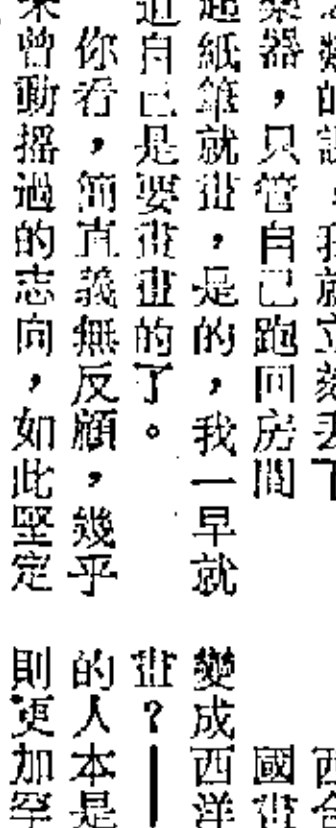 樂器,只管自己跑回房間
起紙筆就畫,是的,我一早就
道自己是要畫畫的了。
你看,簡直義無反顧,幾乎
未曾動搖過的志向,如此堅定
國畫
變成西洋
畫?—
的人本是
則更加罕